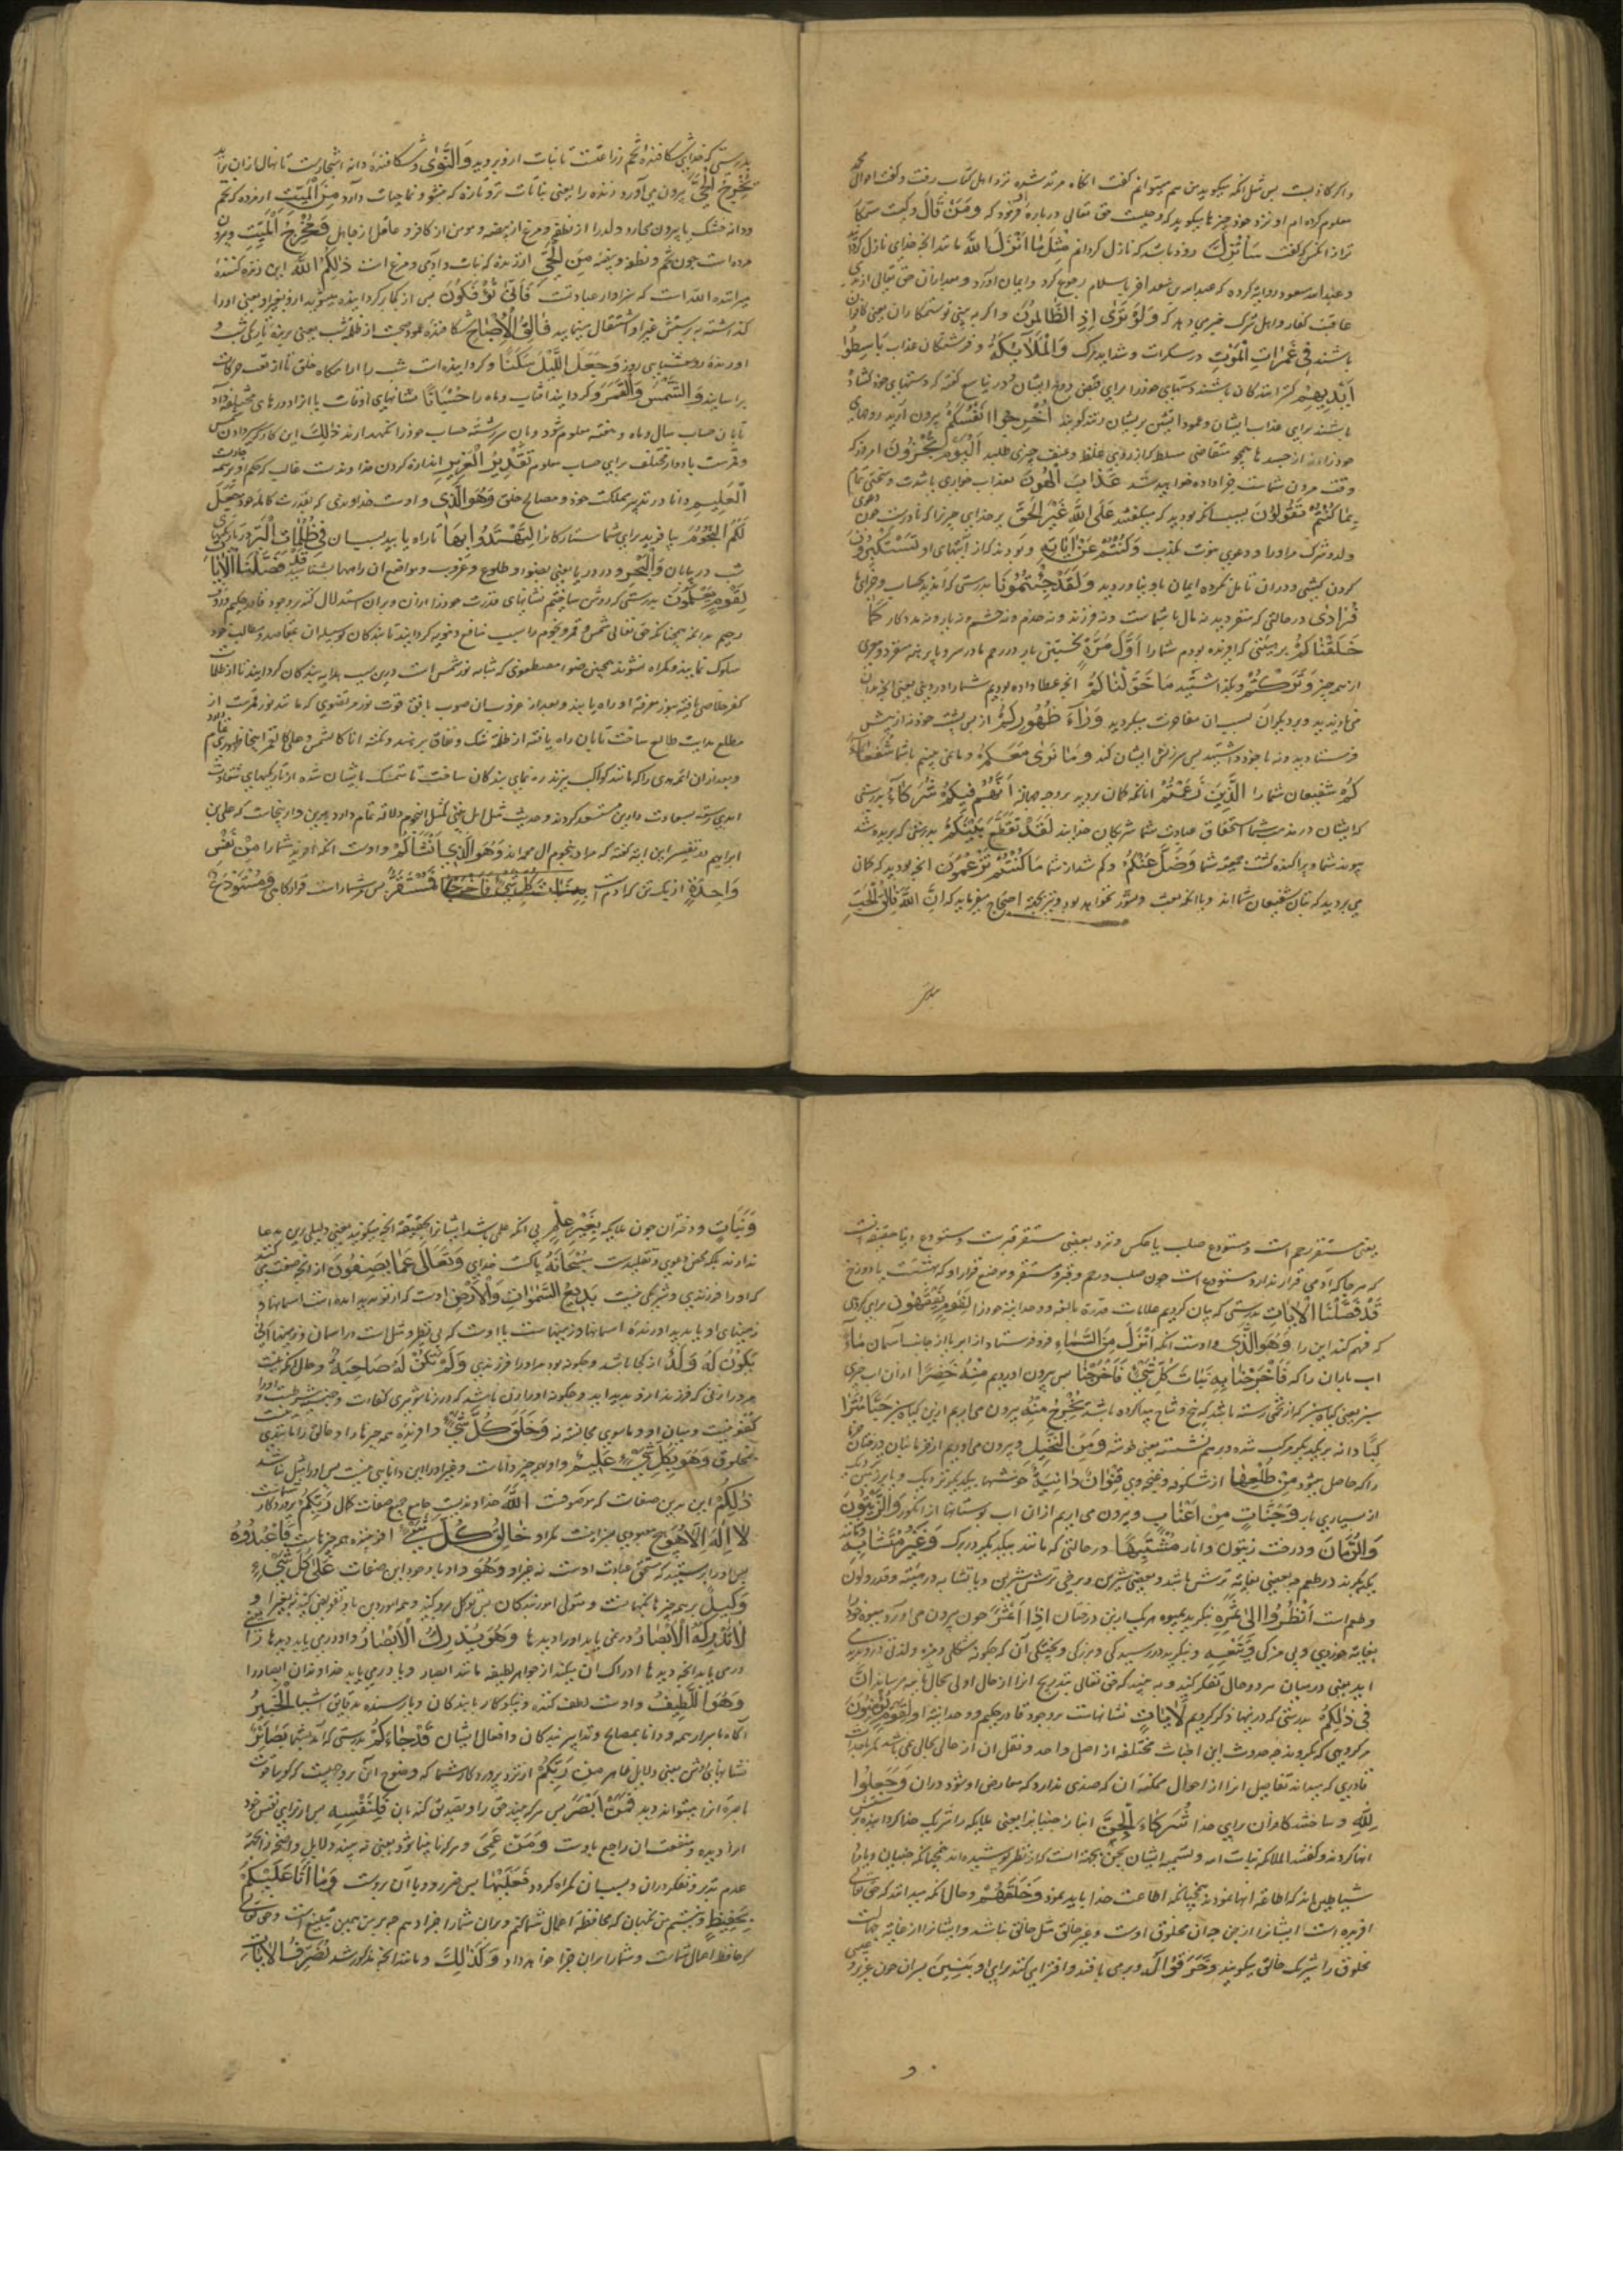 و اگر کاذبست پس مثل آنکه میگوید من هم میتوانم گفت آنگاه مرتد شده نزد اهل کتاب رفت و گفت احوال محمد
معلوم کرده‌ام او نزد خود چیزها میگوید که وحیست حق تعالی درباره او فرمود که وَمَنْ قَالَ و کیست ستمکار
تر از آنکس که گفت سَأُنْزِلُ زود باشد که نازل گردانم مِثْلَ مَا أَنْزَلَ اللهُ مانند آنچه خدای نازل کرد
و عبدالله مسعود روایة کرده که عبدالله بن سعد آخر باسلام رجوع کرد و ایمان آورد و بعد ازان حق تعالی از
عاقبت کفار و اهل شرک خبر میدهد که وَلَوْ تَرَى إِذِ الظَّالِمُونَ و اگر به بینی تو ستمکاران یعنی کافران
باشند فِي غَمَرَاتِ الْمَوْتِ در سکرات و شداید مرک وَالْمَلَائِكَةُ و فرشتگان عذاب بَاسِطُوا
أَيْدِيهِمْ گسترانندگان باشند دستهای خود را برای قبض روح ایشان
باشند برای عذاب ایشان و گویند أَخْرِجُوا أَنْفُسَكُمْ بیرون آرید روحهای
خود را از جسدها همچو متقاضی مسلط که از روی غلظ و عنف چیزی طلبد الْيَوْمَ تُجْزَوْنَ امروز که
وقت مردن شماست جزا داده خواهید شد عَذَابَ الْهُونِ بعذاب خواری با شدت و سختی تمام
بِمَا كُنْتُمْ تَقُولُونَ بسبب آنکه بودید که میگفتید عَلَى اللهِ غَيْرَ الْحَقِّ بر خدای چیزی را که نادرست چون دعوی
ولد و شرک مر او را و دعوی نبوت بکذب وَكُنْتُمْ عَنْ آيَاتِهِ و بودید که از آیتهای او تَسْتَكْبِرُونَ
کردن کشی و دران تامل نکرده ایمان باو نیاوردید وَلَقَدْ جِئْتُمُونَا بدرستی که آمدید بحساب و جزای ما
فُرَادَى در حالتی که منفردید نه مال با شماست و نه فرزند و نه خدم و نه حشم و نه یار و نه مددکار كَمَا
خَلَقْنَاكُمْ بر هیئتی که آفریده بودم شما را أَوَّلَ مَرَّةٍ نخستین بار در رحم مادر سر و پا برهنه منفرد و عری
از همه چیز وَتَرَكْتُمْ و بگذاشتید مَا خَوَّلْنَاكُمْ آنچه عطا داده بودیم شما را در دنیا یعنی آنچه بدان
می نازیدید و بر دیگران بسبب آن مفاخرت میکردید وَرَاءَ ظُهُورِكُمْ از پس پشت خود نه از پیش
فرستادید و نه با خود داشتید پس سرزنش ایشان کند وَمَا نَرَى مَعَكُمْ و ما نمی بینیم با شما شُفَعَاءَ
كُمُ شفیعان شما را الَّذِينَ زَعَمْتُمْ آنانکه گمان بردید أَنَّهُمْ فِيكُمْ شُرَكَاءُ بدرستی
که ایشان در استحقاق عبادت شما شریکان خدایند لَقَدْ تَقَطَّعَ بَيْنَكُمْ بدرستی که بریده شد
پیوند شما و پراکنده گشت جمعیت شما وَضَلَّ عَنْكُمْ و گم شد از شما مَا كُنْتُمْ تَزْعُمُونَ آنچه بودید که گمان
می بردید که بتان شفیعان شمااند و یا آنکه بعث و نشور نخواهد بود احتجاج میفرماید که إِنَّ اللهَ فَالِقُ الْحَبِّ
بدرستی که خدای شکافنده تخم زراعتست تا نبات ازو بروید وَالنَّوَى و شکافنده دانه اشجارست تا نهال ازان برآید
يُخْرِجُ الْحَيَّ بیرون می آورد زنده را یعنی نباتات تر و تازه که نشو و نما حیات دارد مِنَ الْمَيِّتِ از مرده که تخم
و دانه خشک یا بیرون می آرد ولد را از نطفه و مرغ از بیضه و مومن از کافر و عاقل از جاهل وَمُخْرِجُ الْمَيِّتِ و بیرون
مرده است چون تخم و نطفه و بیضه مِنَ الْحَيِّ از زنده که نبات و آدمی و مرغ است ذَلِكُمُ اللهُ این زنده کننده
میراننده الله است که سزاوار عبادتست فَأَنَّى تُؤْفَكُونَ پس از کجا برگردانیده میشوید ازو بغیر او یعنی او را
گذاشته بپرستش غیر او اشتغال مینمایید فَالِقُ الْإِصْبَاحِ شکافنده عمود صبحست از ظلمت شب یعنی برنده تاریکی شب
آورنده روشنایی روز وَجَعَلَ اللَّيْلَ سَكَنًا و گردانیده است شب را آرامگاه خلق تا از تعب حرکات
برآسایند وَالشَّمْسَ وَالْقَمَرَ و گردانید آفتاب و ماه را حُسْبَانًا نشانهای اوقات
تا بآن حساب سال و ماه و هفته معلوم شود و بآن سررشته حساب خود را نگهدارند ذَلِكَ این کار
و قمرست بادوار مختلف برای حساب معلوم تَقْدِيرُ الْعَزِيزِ اندازه کردن خداوندست غالب که حکم او بر همه
الْعَلِيمِ و دانا در تدبیر مملکت خود و مصالح خلق وَهُوَ الَّذِي و اوست خداوندی که بقدرت کامله خود جَعَلَ
لَكُمُ النُّجُومَ بیافرید برای شما ستارگان را لِتَهْتَدُوا بِهَا تا راه یابید بسبب آن فِي ظُلُمَاتِ الْبَرِّ در تاریکی
شب در بیابان وَالْبَحْرِ و در دریا یعنی و طلوع و غروب و مواضع آن راهها بشناسید قَدْ فَصَّلْنَا الْآيَاتِ
لِقَوْمٍ يَعْلَمُونَ بدرستی که روشن ساختیم نشانهای قدرت خود را و بآن استدلال کنند بر وجود قادر حکیم
رحیم بدانکه همچنانکه حق تعالی شمس و قمر و نجوم را سبب منافع گردانید تا بندگان
سلوک نمایند و گمراه نشوند همچنین ضوء مصطفوی که نور شمس است سبب هدایت بندگان گردانید تا از ظلمات
کفر خلاصی یافته بنور معرفة او راه یابند و بعد از غروب آن صوب بافق فوت نور مرتضوی که مانند نور قمرست از
مطلع هدایت طالع ساخت تا بآن راه یافته از ظلمة شک و نفاق برهند و گفته انا کالشمس و علی کالقمر
و بعد ازان ائمه هدی را که مانند کواکب نیرند ره نمای بندگان ساخت تا بتمسک بایشان شده از تاریکیهای شقاوت
ابدی رسته بسعادت دارین مستسعد گردند و حدیث مثل اهل بیتی کمثل النجوم دلالة تمام دارد برین و ازینجاست که علی بن
ابراهیم در تفسیر این آیه گفته که مراد بنجوم آل محمداند وَهُوَ الَّذِي أَنْشَأَكُمْ و اوست آنکه آفرید شما را مِنْ نَفْسٍ
وَاحِدَةٍ از یک تن که آدم است فَمُسْتَقَرٌّ پس مر شما راست قرارگاهی وَمُسْتَوْدَعٌ
یعنی مستقر رحم است و مستودع صلب یا عکس و نزد بعضی مستقر قبرست و مستودع دنیا
که هر جا که آدمی قرار ندارد مستودع است چون صلب و رحم و قبر و مستقر موضع قرار او که بهشتست یا دوزخ
قَدْ فَصَّلْنَا الْآيَاتِ بدرستی که بیان کردیم علامات قدرة بالغه و وحدانیة خود را لِقَوْمٍ يَفْقَهُونَ برای گروهی
که فهم کنند این را وَهُوَ الَّذِي و اوست آنکه أَنْزَلَ مِنَ السَّمَاءِ فرو فرستاد از ابر یا از جانب آسمان مَاءً
آب باران را که فَأَخْرَجْنَا بِهِ نَبَاتَ كُلِّ شَيْءٍ فَأَخْرَجْنَا پس بیرون آوردیم مِنْهُ خَضِرًا از آن آب چیزی
سبز یعنی گیاه سبز که از تخم رسته باشد که بیخ و شاخ پیدا کرده باشد نُخْرِجُ مِنْهُ بیرون می آریم ازین گیاه سبز حَبًّا مُتَرَا
كِبًا دانه بر یکدیگر مرکب شده و بر هم نشسته یعنی خوشه وَمِنَ النَّخْلِ و بیرون می آوریم از خرمابنان
را که حاصل میشود مِنْ طَلْعِهَا از شکوفه و غنچه وی قِنْوَانٌ دَانِيَةٌ خوشها بیکدیگر نزدیک
از بسیاری بار وَجَنَّاتٍ مِنْ أَعْنَابٍ و بیرون می آریم ازان آب بوستانها از انگور وَالزَّيْتُونَ
وَالرُّمَّانَ و درخت زیتون و انار مُشْتَبِهًا در حالتی که مانند بیکدیگر در برگ وَغَيْرَ مُتَشَابِهٍ
یکدیگرند در طعم چه بعضی بغایة ترش باشد و بعضی شیرین و برخی ترش شیرین و یا تشابه در هیئة و قدر و لون
و طعم است أُنْظُرُوا إِلَى ثَمَرِهِ بنگرید بمیوه هر یک ازین درختان إِذَا أَثْمَرَ چون بیرون می آورد میوه خود را
بغایة خوردی و بی مزگی وَيَنْعِهِ و بنگرید در رسیدگی و بزرگی و پختگی آن که چگونه
یعنی در میان هر دو حال تفکر کنید و به بینید که حق تعالی بتدریج آنرا از حال اولی بحال میرساند إِنَّ
فِي ذَلِكُمْ بدرستی که در ینها ذکر کردیم لَآيَاتٍ نشانهاست بر وجود قادر حکیم و وحدانیة او لِقَوْمٍ يُؤْمِنُونَ
مر گروهی که بگروند چه حدوث این اجناس مختلفه از اصل واحد و نقل آن از حالی بحالی نمی باشد مگر باحداث
قادری که میداند تفاصیل آنرا از احوال ممکنه آن که ضدی ندارد که معارض او شود دران وَجَعَلُوا
لِلّٰهِ و ساختند کافران برای خدا شُرَكَاءَ الْجِنَّ انبازان جنیان را یعنی ملایکه را شریک خدا گردانیده
آنها کردند و گفتند الملائکه بنات الله و تسمیه ایشان بجن بجهة آنست که از نظر پوشیده‌اند همچنانکه جنیان
شیاطین‌اند که اطاعة آنها نمودند همچنانکه اطاعت خدا باید نمود وَخَلَقَهُمْ و حال آنکه میدانند که حق تعالی
آفریده است ایشان را و غیر خالق مثل خالق نباشد و ایشان از غایة جهالت
مخلوق را شریک خالق میگویند وَخَرَقُوا لَهُ و برمی بافند و افترا میکنند برای او بَنِينَ پسران چون عزیر و عیسی
وَبَنَاتٍ و دختران چون ملایکه بِغَيْرِ عِلْمٍ بی آنکه علمی باشد ایشان را بحقیقة آنچه میگویند یعنی دلیلی برین مدعا
ندارند بلکه محض دعوی و تقلیدست سُبْحَانَهُ پاکست خدای وَتَعَالَى عَمَّا يَصِفُونَ از آنچه صفت میکنند
که او را فرزندی و شریکی نیست بَدِيعُ السَّمٰوَاتِ وَالْأَرْضِ اوست که از نو پدید آمده است آسمانها و
زمینهای او یا پدید آورنده آسمانها و زمینهاست یا اوست که بی نظیر و مثل است در آسمان و زمینها أَنَّى
يَكُونُ لَهُ وَلَدٌ از کجا باشد و چگونه بود مر او را فرزندی وَلَمْ تَكُنْ لَهُ صَاحِبَةٌ و حال آنکه نیست
مر او را زنی که فرزند ازو پدید آید و چگونه او را زن باشد که در زناشوهری کفاءت و جنسیت شرطست و او را
کفو نیست و میان او و ماسوی مجانسه نه وَخَلَقَ كُلَّ شَيْءٍ و آفریده همه چیزها را و خالق را مانندی
مخلوق وَهُوَ بِكُلِّ شَيْءٍ عَلِيمٌ و او بهمه چیز داناست و غیر او را این دانایی نیست پس او را مثل نباشد
ذَلِكُمُ این بدین صفات که موصوفست اللهُ خداوندیست جامع جمیع صفات کمال رَبُّكُمْ پروردگار شماست
لَا إِلَهَ إِلَّا هُوَ هیچ معبودی سزا نیست مگر او خَالِقُ كُلِّ شَيْءٍ آفریننده همه چیزهاست فَاعْبُدُوهُ
پس او را پرستید که مستحق عبادت اوست نه غیر او وَهُوَ و او با وجود این صفات عَلَى كُلِّ شَيْءٍ
وَكِيلٌ بر همه چیزها نگهبانست و متولی امور بندگان پس توکل برو کنید و همه امور دین باو تفویض کنید نه بغیر او
لَا تُدْرِكُهُ الْأَبْصَارُ در نمی یابد او را دیدها وَهُوَ يُدْرِكُ الْأَبْصَارَ و او درمی یابد دیدها را
درمی یابد آنچه دیدها ادراک آن نکند از جواهر لطیفه مانند ابصار و یا درمی یابد خداوندان ابصار را
وَهُوَ اللَّطِيفُ و اوست لطف کننده و نیکوکار با بندگان و یا رسنده بدقایق اشیا الْخَبِيرُ
آگاه باسرار همه و دانا بمصالح و تدابیر بندگان و افعال ایشان قَدْ جَاءَكُمْ بدرستی که آمد بشما بَصَائِرُ
نشانهای روشن یعنی دلایل ظاهر مِنْ رَبِّكُمْ از نزد پروردگار شما که وضوح آن بر وجهیست که گویا قوت
باصره آنرا میتواند دید فَمَنْ أَبْصَرَ پس هر که بیند حق را و تصدیق کند بآن فَلِنَفْسِهِ پس از برای نفس خود
آنرا دیده و منفعت آن راجع باوست وَمَنْ عَمِيَ و هر که نابینا شود یعنی نه بیند دلایل واضح را بجهة
عدم تدبر و تفکر دران و بسبب آن گمراه گردد فَعَلَيْهَا پس ضرر و وبال آن بروست وَمَا أَنَا عَلَيْكُمْ
بِحَفِيظٍ و نیستم من نگهبان که محافظة اعمال شما کنم و بران شما را جزا دهم چه بر من همین تبلیغ است و حق تعالی
که حافظ اعمال شماست و شما را بران جزا خواهد داد وَكَذَلِكَ و مانند آنچه مذکور شد نُصَرِّفُ الْآيَاتِ